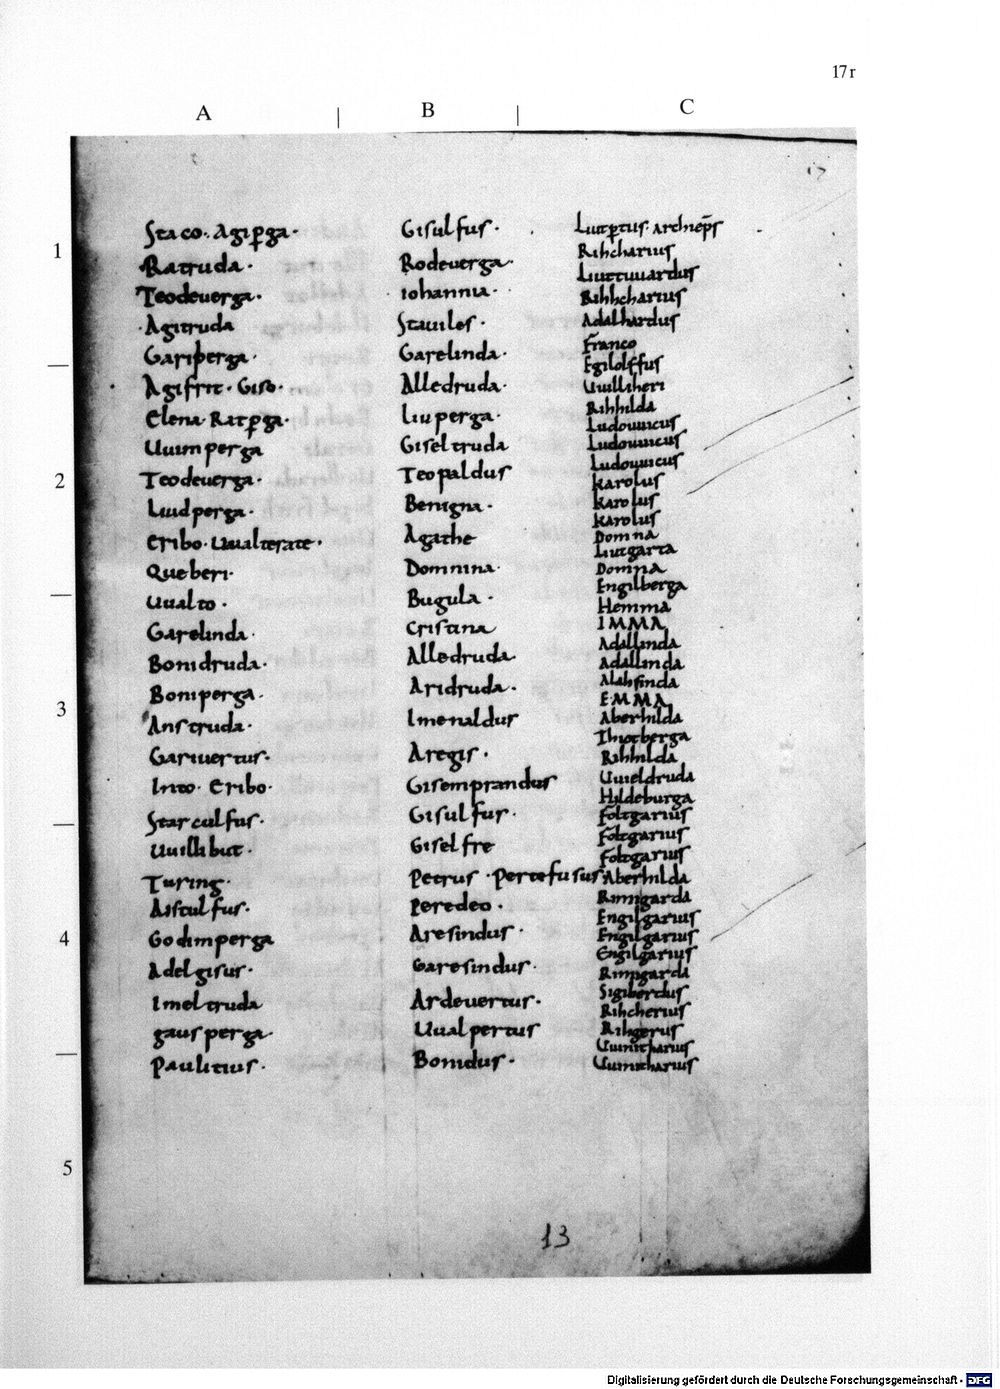 17r
A
B
C
17
Staco · Agip̱ga ·
Ratruda ·
Teodeuerga ·
· Agitruda
Gariperga ·
Agifrit · Giso ·
Elena · Ratp̱ga ·
Uuimperga
Teodeuerga ·
Liudperga ·
Eribo · Uualterate ·
Queberi ·
Uualto ·
Garelinda ·
Bonidruda ·
Boniperga ·
Anstruda ·
Gariuertus ·
Into · Eribo ·
Starculfus ·
Uuillibut ·
Turing ·
Aistulfus ·
Godimperga
Adelgisus ·
Imeltruda
gausperga ·
Paulitius ·
Gisulfus ·
Rodeuerga ·
iohannia ·
Stauiles ·
Garelinda ·
Alledruda ·
Liuperga ·
Giseltruda
Teopaldus
Benigna ·
Agathe
Domnina ·
Bugula ·
Cristina
Alledruda ·
Aridruda ·
Imenaldus
Aregis ·
Gisemprandus
Gisulfus ·
Giselfre
Petrus · Pertefusus
Peredeo ·
Aresindus ·
Garesindus ·
Ardeuertus ·
Uualpertus
Bonidus ·
Liutp̱tus · archiep̄s
Rihcharius
Liuttuuardus
Rihhcharius
Adalhardus
Franco
Egilolffus
Uuilliheri
Rihhilda
Ludouuicus
Ludouuicus
Ludouuicus
Karolus
Karolus
Karolus
Domna
Liutgarta
Domna
Engilberga
Hemma
IMMA
Adallinda
Adallinda
Alahsinda
EMMA
Aberhilda
Thiotberga
Rihhilda
Uuieldruda
Hildeburga
Foltgarius
Foltgarius
Foltgarius
Aberhilda
Rimigarda
Engilgarius
Engilgarius
Engilgarius
Rimigarda
Sigibertus
Rihcherius
Rihgerus
Uuinitharius
Uuinitharius
1
2
3
4
5
13
Digitalisierung gefördert durch die Deutsche Forschungsgemeinschaft · DFG